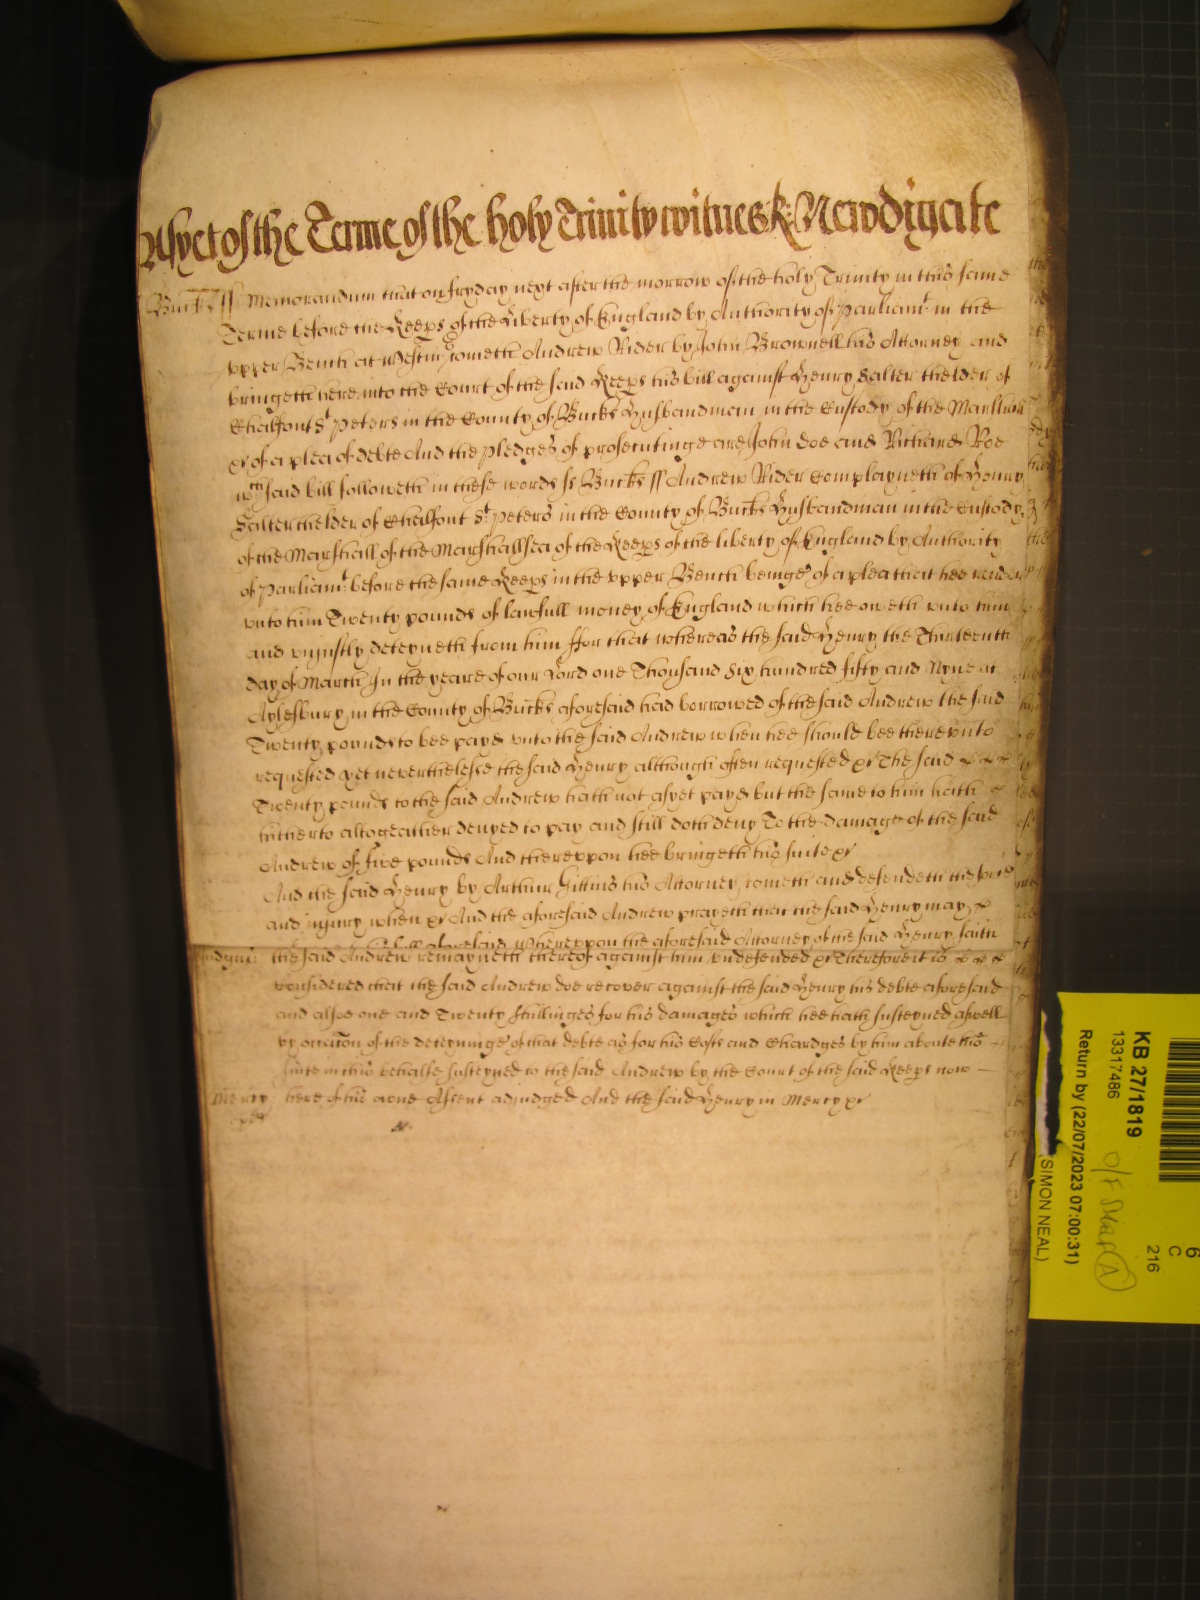 As yet of the Terme of the holy Trinity witnes R: Newdigate
Bucks ss Memorandum that on fryday next after the morrow of the holy Trinity in this same
Terme before the Keeps of the Liberty of England by Authority of Parliamt. in the
vpper Bench at Westm cometh Andrew Rider by John Brownell his Attorney and
bringeth here into the Court of the said Keeps his bill against Henry Salter thelder of
Chalfont St Peters in the County of Bucks Husbandman in the Custody of the Marshall
&c of a plea of debte And the pledges of prosecutinge are John Doe and Richard Roe
wch said bill followeth in these words ss Bucks ss Andrew Rider Complayneth of Henry
Salter thelder of Chalfont St Peters in the County of Bucks Husbandman in the Custody
of the Marshall of the Marshallsea of the Keeps of the liberty of England by Authority
of Parliamt. before the same Keeps in the vpper Bench beinge of a plea that hee render
vnto him Twenty pounds of lawfull money of England which hee oweth vnto him
and vniustly deteyneth from him ffor that whereas the said Henry the Thirteenth
day of March In the yeare of our Lord one Thousand Six hundred fifty and Nyne at
Aylesbury in the County of Bucks aforesaid had borrowed of the said Andrew the said
Twenty pounds to bee payd vnto the said Andrew when hee should bee therevnto
requested yet neverthelesse the said Henry although often requested &c The said
Twenty pounds to the said Andrew hath not as yet payd but the same to him hath
hitherto altogeather denyed to pay and still doth deny To the damage of the said
Andrew of five pounds And therevppon hee bringeth this suite &c
And the said Henry by Arthur Gittins his Attorney cometh and defendeth the force
and iniury when &c And the aforesaid Andrew prayeth that the said Henry may
bill aforesaid Wherevppon the aforesaid Attorney of the said Henry saith
Iudgmt: the said Andrew remayneth thereof against him vndefended &c Therefore it is
considered that the said Andrew doe recover against the said Henry his debte aforesaid
and alsoe one and Twenty shillinges for his damages which hee hath susteyned aswell
by occacon of the deteyninge of that debte as for his Costs and Chardges by him aboute his
suite in this behalfe susteyned to the said Andrew by the Court of the said Keeps now
Mercy here of his owne Assent adiudged And the said Henry in Mercy &c
KB 27/1819
13317486
Return by (22/07/2023 07:00:31)
(SIMON NEAL)
6
C
216